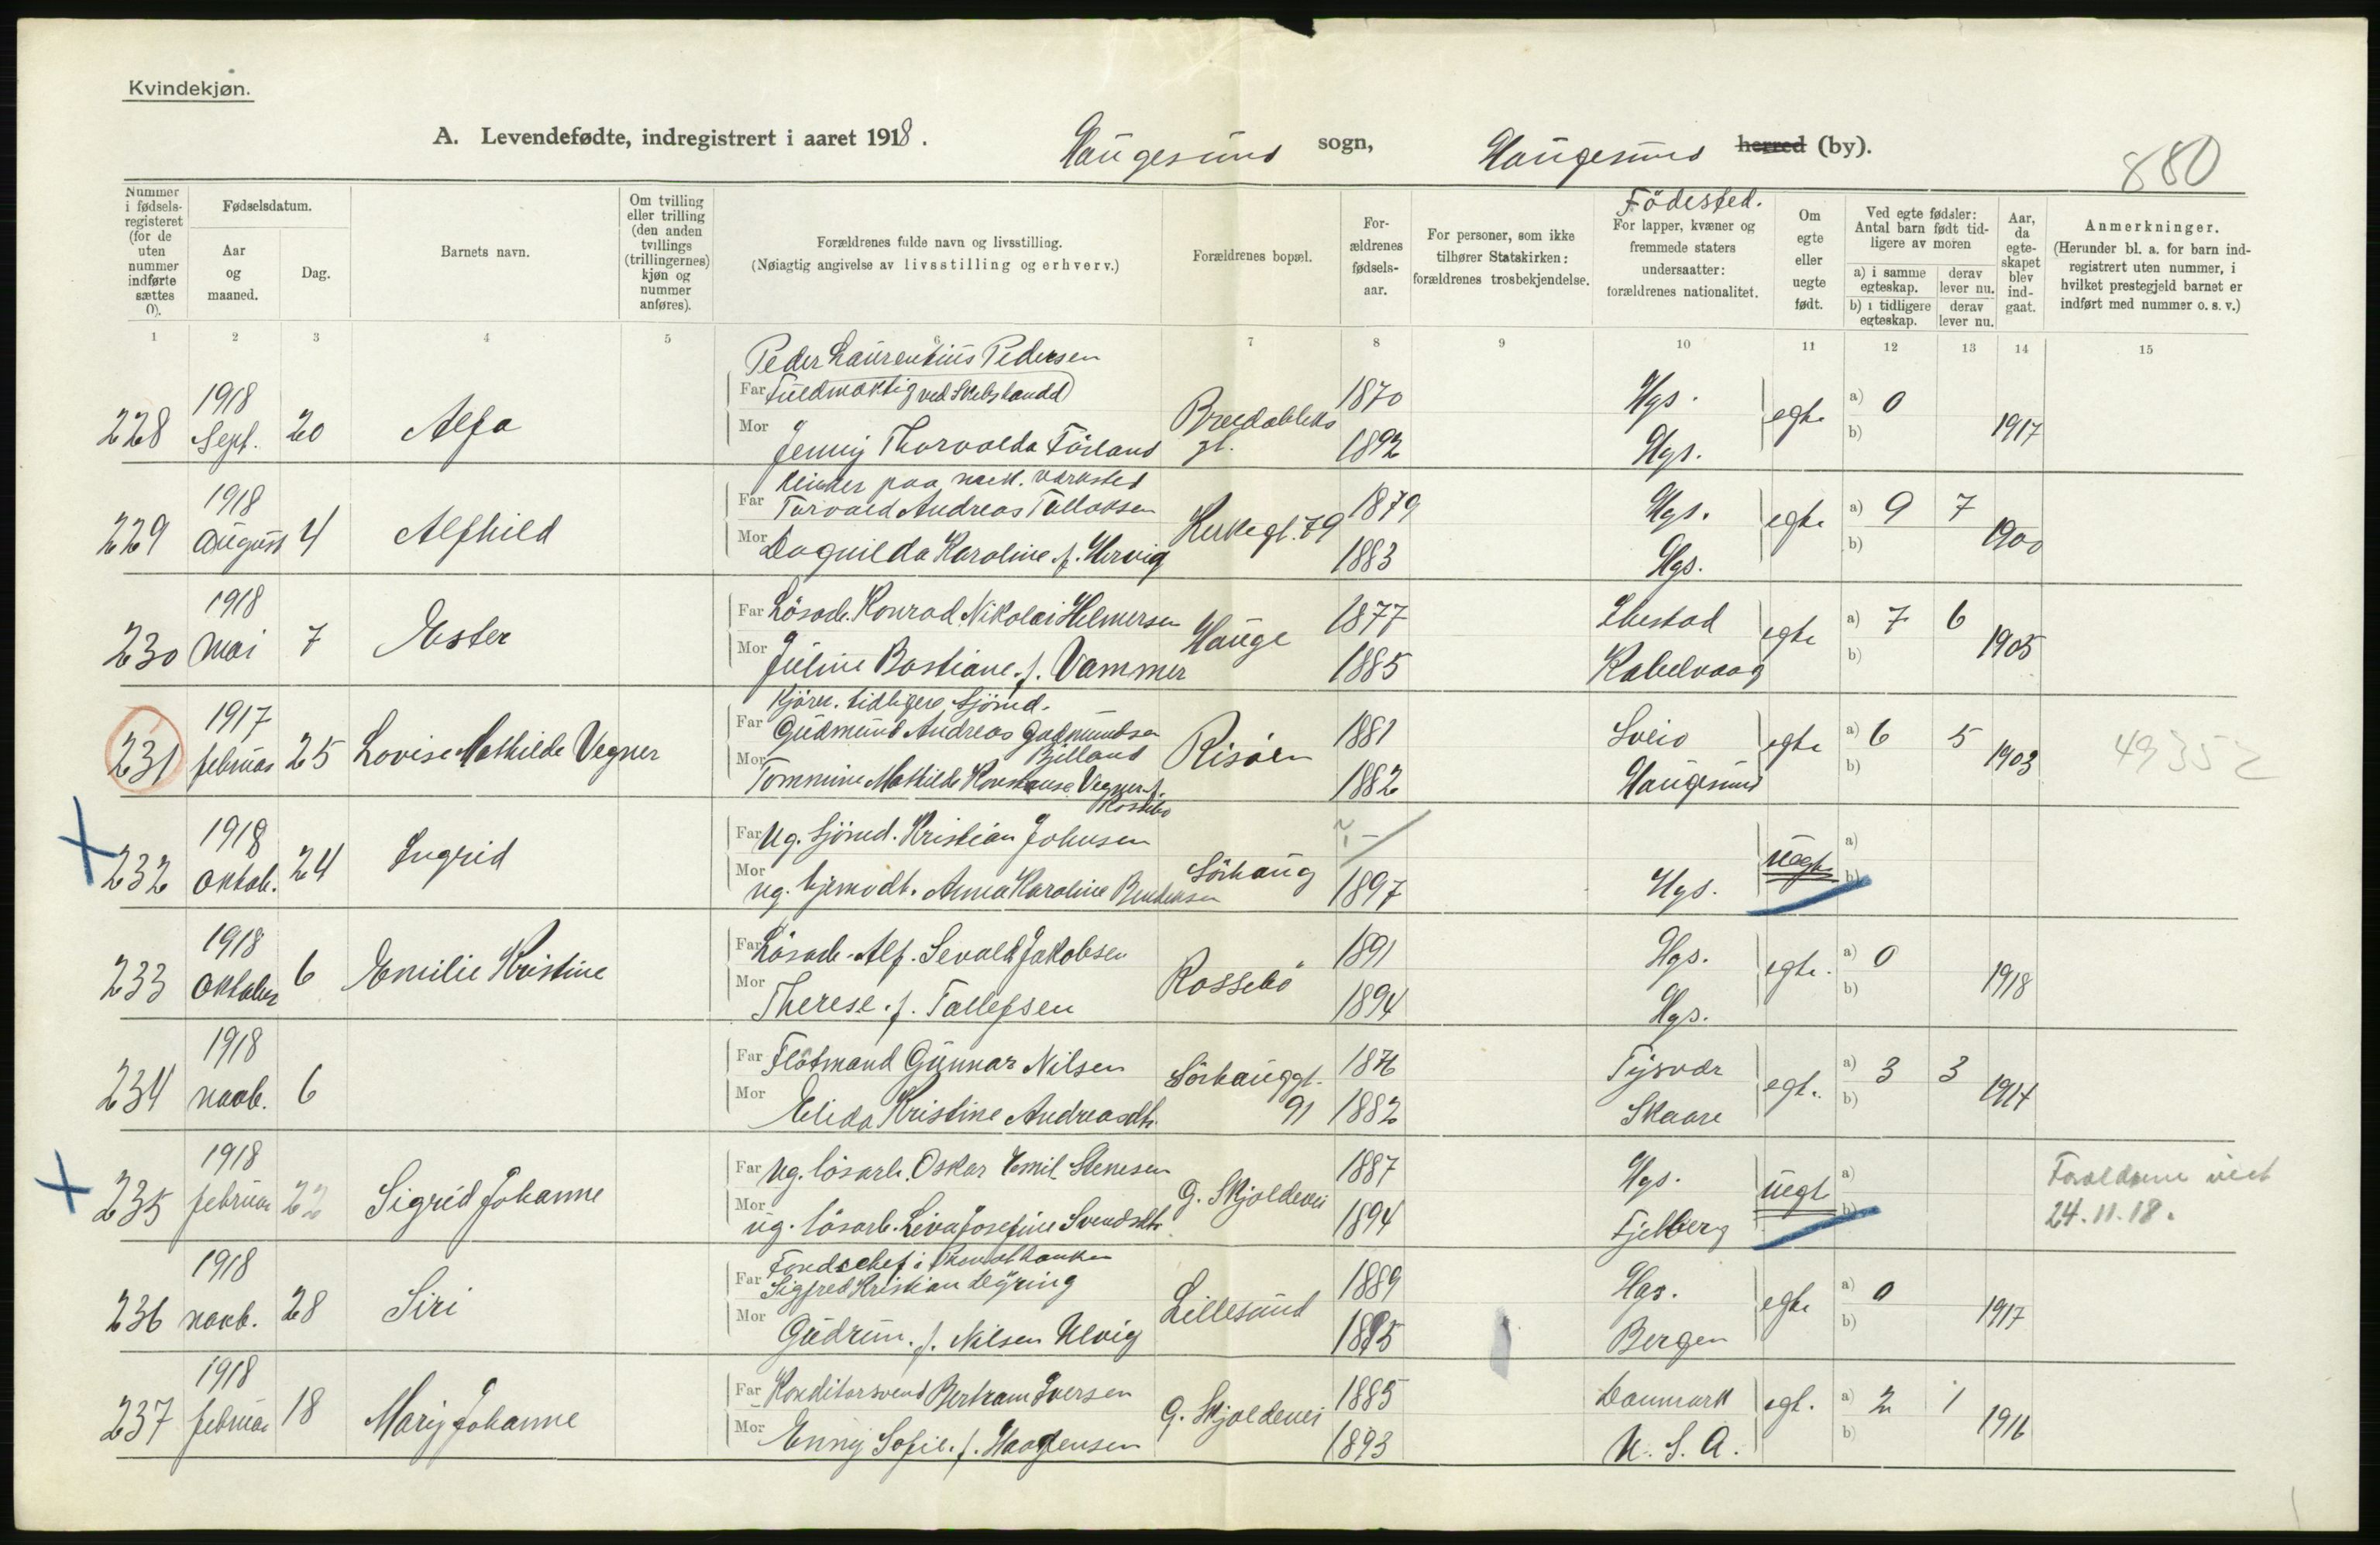 Kvindekjøn.
A. Levendefødte, indregistrert i aaret 1918. Haugesund sogn, Haugesund herred (by).
880
Nummer i fødsels-registeret (for de uten nummer indførte sættes 0).
Fødselsdatum.
Aar og maaned.
Dag.
Barnets navn.
Om tvilling eller trilling (den anden tvillings (trillingernes) kjøn og nummer anføres).
Forældrenes fulde navn og livsstilling.
(Nøiagtig angivelse av livsstilling og erhverv.)
Forældrenes bopæl.
For-ældrenes fødsels-aar.
For personer, som ikke tilhører Statskirken: forældrenes trosbekjendelse.
Födested.
For lapper, kvæner og fremmede staters undersaatter: forældrenes nationalitet.
Om egte eller uegte født.
Ved egte fødsler: Antal barn født tid-ligere av moren
a) i samme egteskap. derav lever nu.
b) i tidligere egteskap. derav lever nu.
Aar, da egte-skapet blev ind-gaat.
Anmerkninger.
(Herunder bl. a. for barn ind-registrert uten nummer, i hvilket prestegjeld barnet er indført med nummer o. s. v.)
1 2 3 4 5 6 7 8 9 10 11 12 13 14 15
Peder Laurentius Pedersen
228 1918 Sept. 20 Alfa Far Fuldmæktig ved 1870 Hgs. egte a) 0 b) 1917
Mor Jenny Thorvalda Förland Breidabliks gt. 1892 Hgs.
klinker paa mek. verksted
229 1918 August 4 Alfhild Far Torvald Andreas Tollaksen Kirkegt. 79 1879 Hgs. egte a) 9 7 b) 1900
Mor Dagnilda Karoline f. Hervig 1883 Hgs.
230 1918 Mai 7 Ester Far Lösarb. Konrad Nikolai Helmersen Hauge 1877 Ibestad egte a) 7 6 b) 1905
Mor Juline Bastiane f. Vammer 1885 Kabelvaag
Kjörer. tidligere Sjömd.
231 1917 februar 25 Lovise Mathilde Vegner Far Gudmund Andreas Gudmundsen Risöen 1881 Sveio egte a) 6 5 b) 1903 49352
Bjelland
Mor Tommine Mathilde Konstanse Vegner f. Rossebö 1882 Haugesund
232 1918 Oktob. 24 Ingrid Far Ug. Sjömd. Kristian Johnsen ? - uegte a) b)
Mor ug. hjemvdt. Anna Karoline Bendiksen Sörhaug 1897 Hgs.
233 1918 Oktober 6 Emilie Kristine Far Lösarb. Alf. Sevald Jakobsen Rossebö 1891 Hgs. egte. a) 0 b) 1918
Mor Therese f. Tallefsen 1894 Hgs.
234 1918 novb. 6 Far Flötmand Gunnar Nilsen Sörhauggt. 91 1876 Tysvær egt. a) 3 3 b) 1914
Mor Elida Kristine Andreasdtr. 1882 Skaare
235 1918 februar 22 Sigrid Johanne Far Ug. lösarb. Oskar Emil Stenesen G. Skjoldevei 1887 Hgs. uegt a) b) Foreldrene viet 24.11.18.
Mor ug. lösarb. Liva Josefine Svendsdtr. 1894 Fjelberg
Fondschef i Privatbanken
236 1918 novb. 28 Siri Far Sigfred Kristian Döring Lillesund 1889 Hgs. egte a) 0 b) 1917
Mor Gudrun f. Nilsen Ulvig 1895 Bergen
237 1918 februar 18 Mary Johanne Far Konditorsvend Bertram Iversen G. Skjoldevei 1885 Danmark egt. a) 2 1 b) 1916
Mor Enny Sofie f. Haagensen 1893 U. S. A.